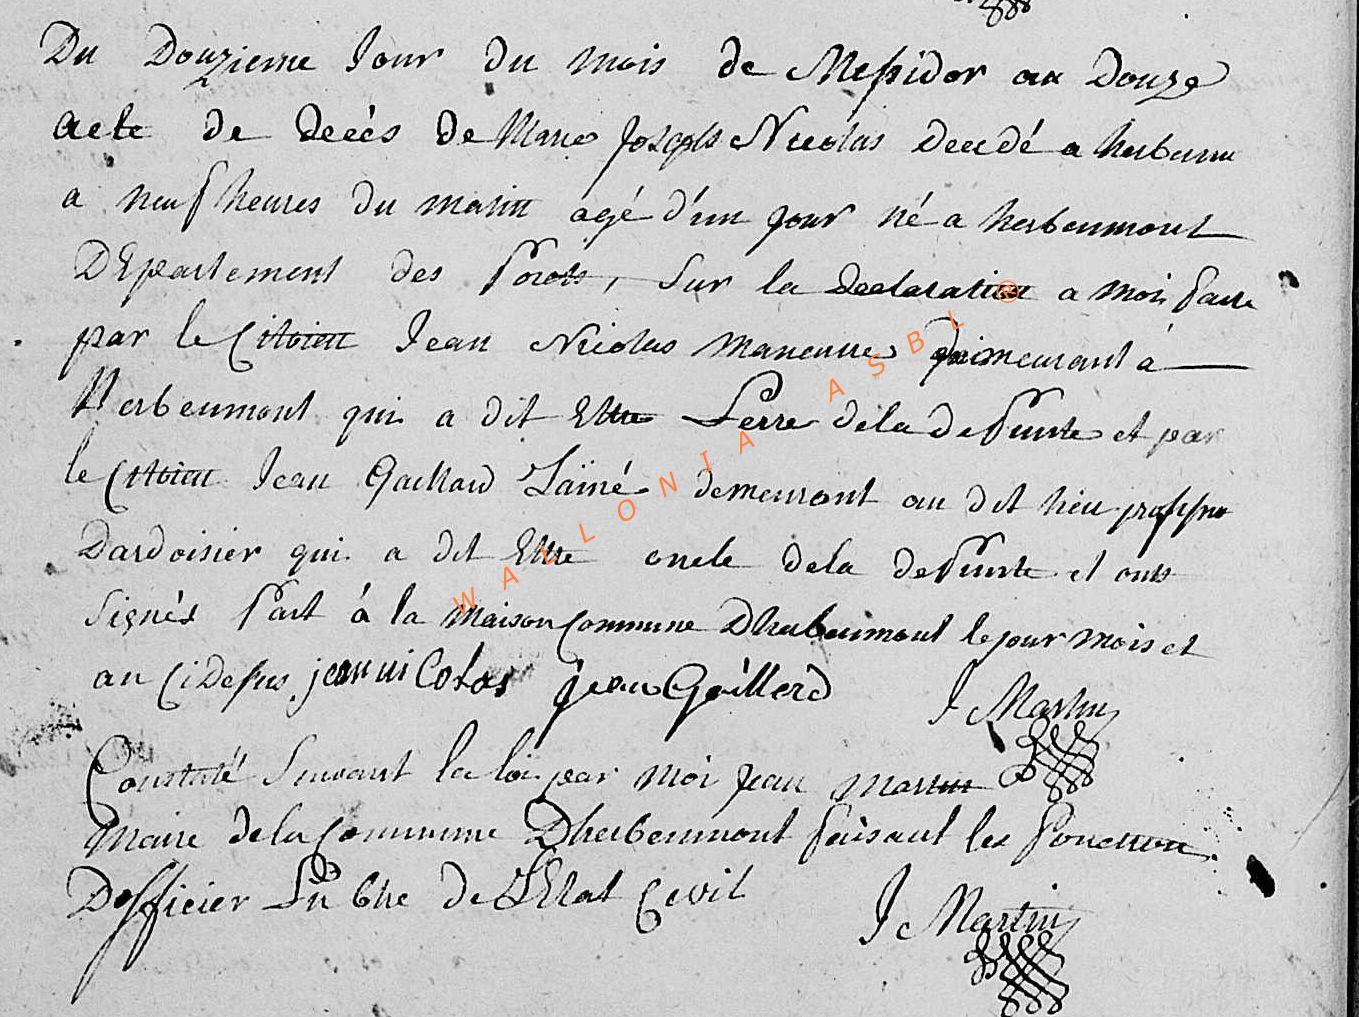 Du Douzieme Jour du mois de Messidor an Douze
acte de decès de Marie Joseph Nicolas decedé a herbeum
a neuf heures du matin agé d'un jour né a herbeumont
DEpartement des Forets, Sur la declaration a moi faite
par le Citoien Jean Nicolas maneuvre demeurant à
herbeumont qui a dit Etre Perre dela defunte et par
le Citoien Jean Gaillard Lainé demeurant au dit lieu
Dardoisier qui a dit Etre oncle dela defunte et onts
Signès Fait à la maison Commune Dherbeumont le jour mois et
an Ci Dessus jean nicolas jean Gaillerd J Martin
Constaté Suivant la loi par moi Jean Martin
Maire dela Commune Dherbeumont faisant les fonction
Dofficier Publie de LEtat Civil J Martin
WALLONIA ASBL ®